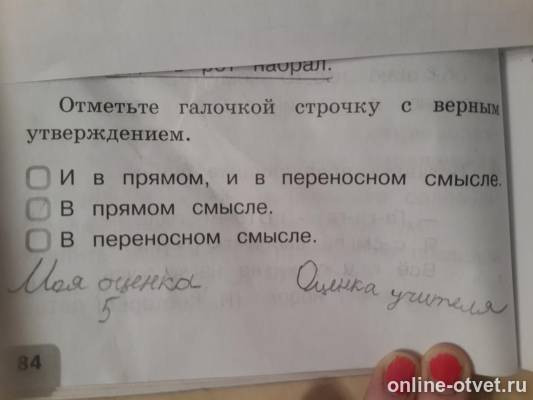 рот набрал.
Отметьте галочкой строчку с верным
утверждением.
И в прямом, и в переносном смысле.
В прямом смысле.
В переносном смысле.
Моя оценка
5
Оценка учителя
84
online-otvet.ru